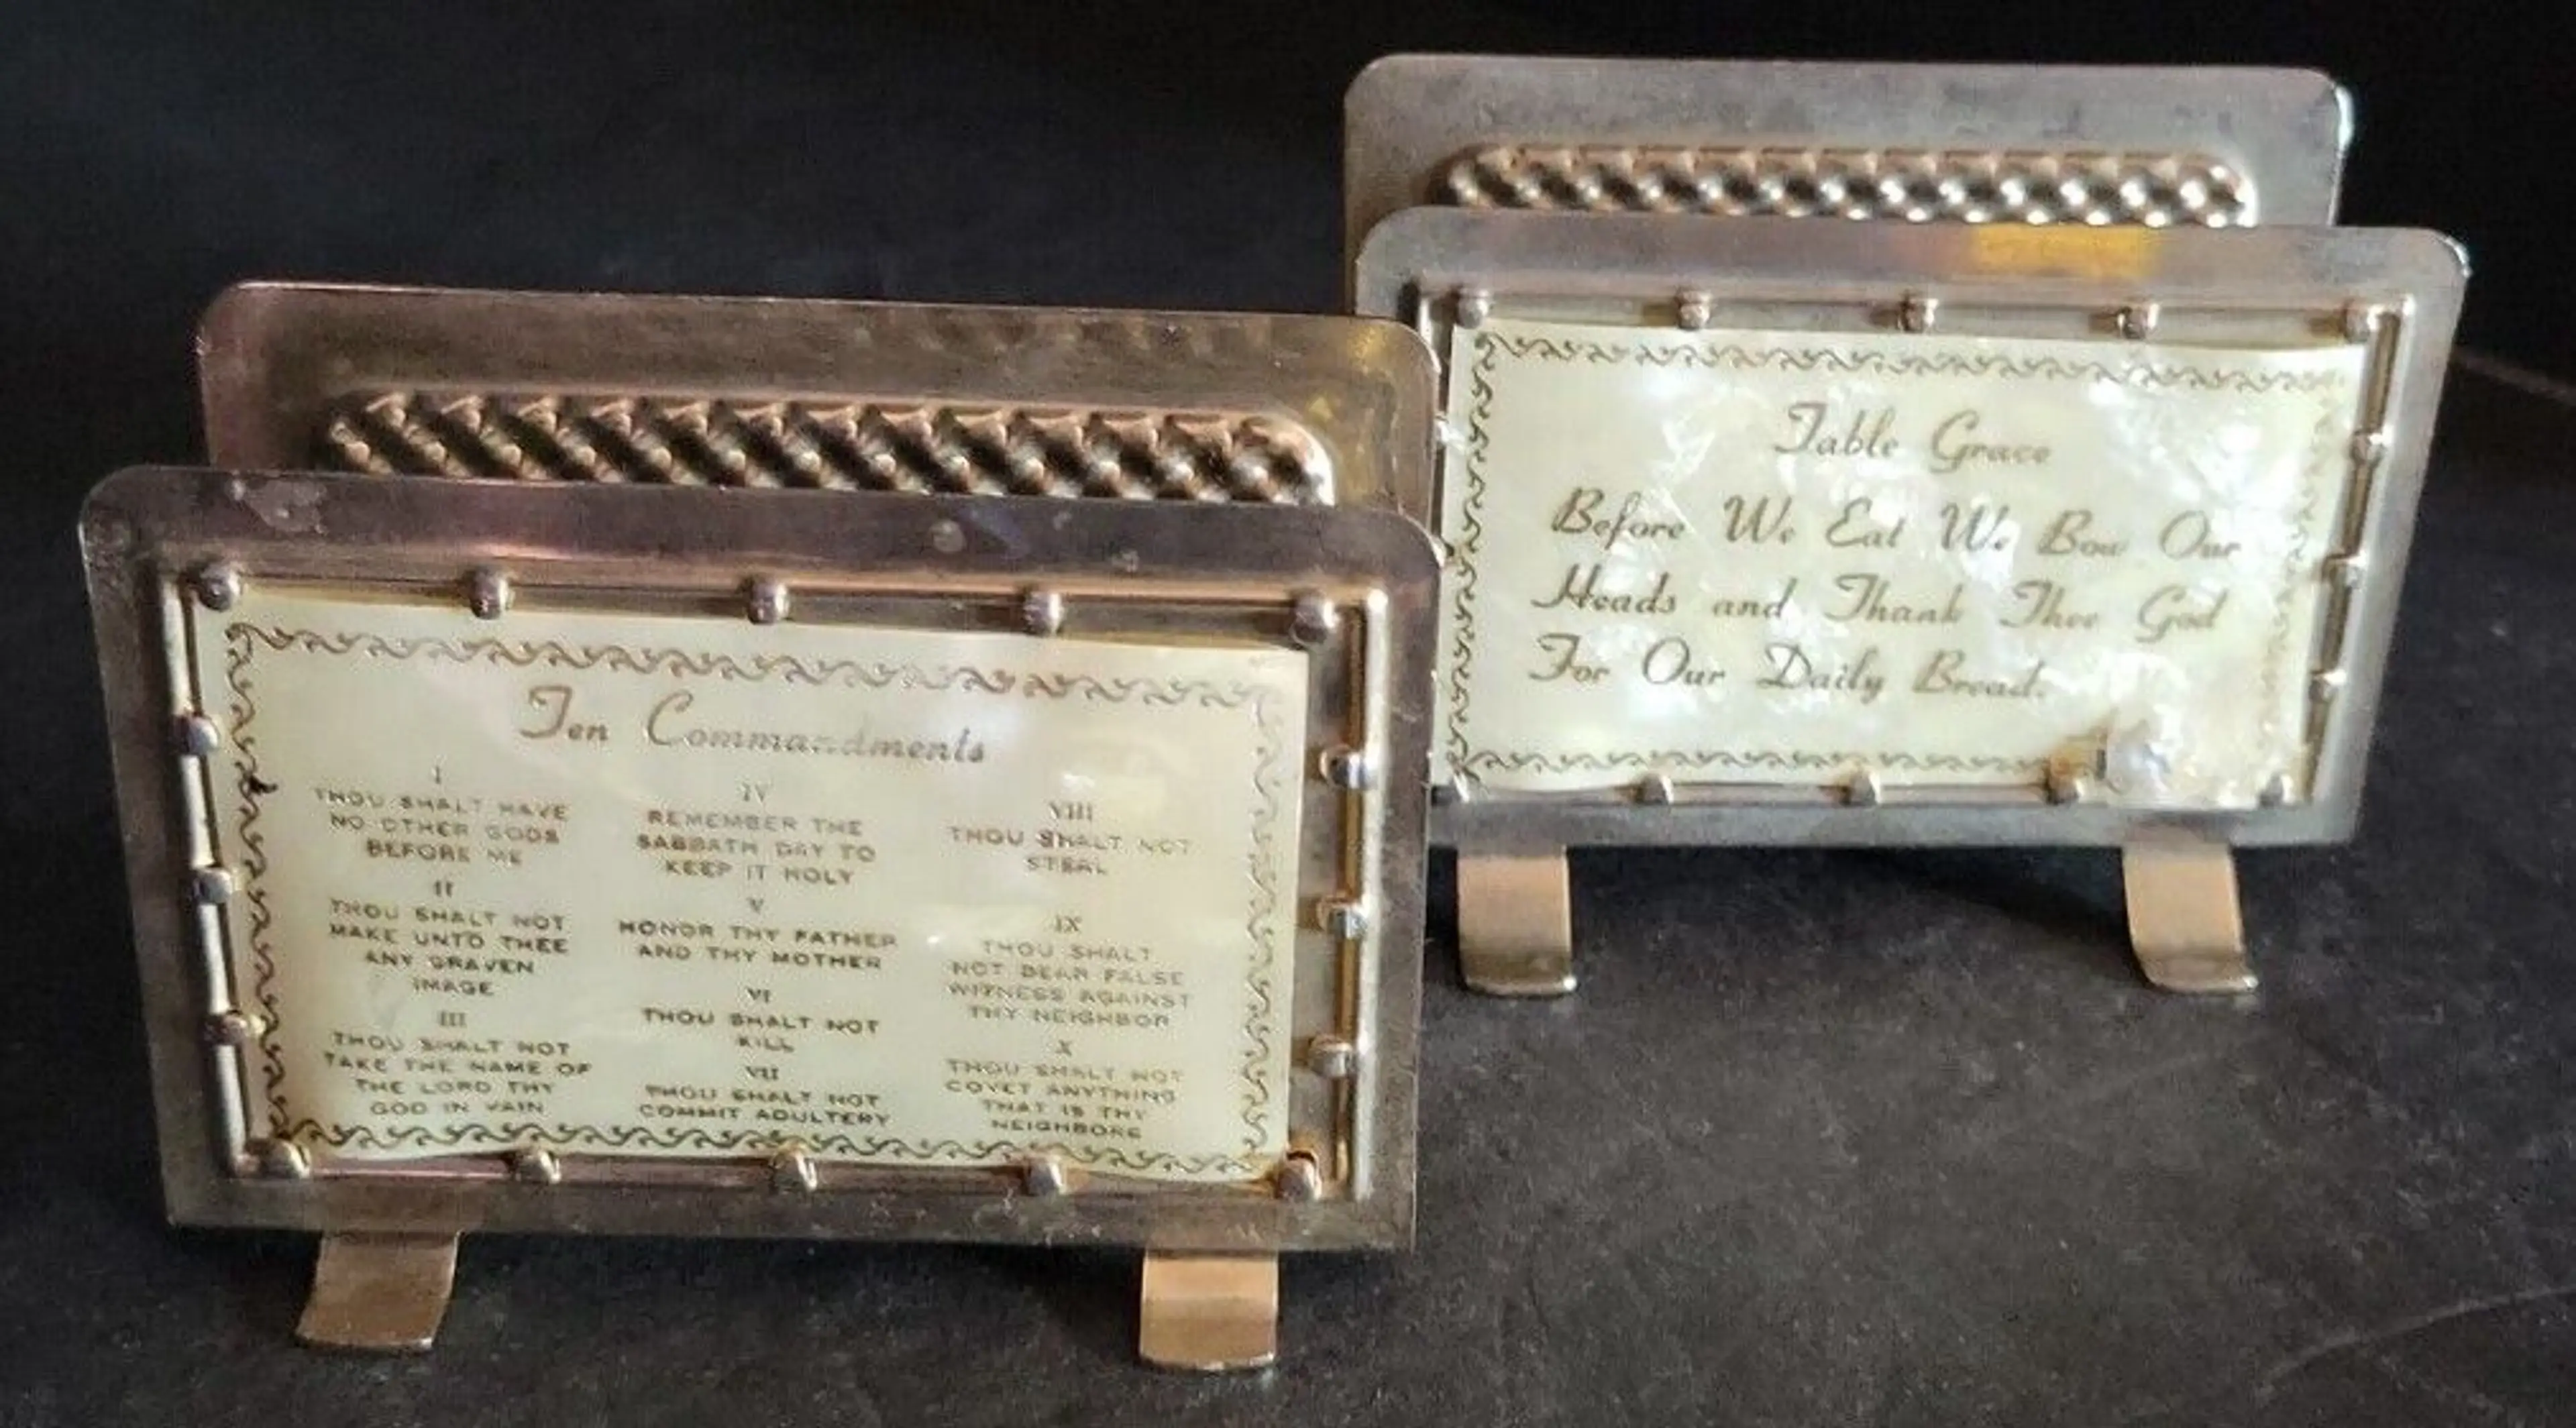 Ten Commandments
I
THOU SHALT HAVE
NO OTHER GODS
BEFORE ME
II
THOU SHALT NOT
MAKE UNTO THEE
ANY GRAVEN
IMAGE
III
THOU SHALT NOT
TAKE THE NAME OF
THE LORD THY
GOD IN VAIN
IV
REMEMBER THE
SABBATH DAY TO
KEEP IT HOLY
V
HONOR THY FATHER
AND THY MOTHER
VI
THOU SHALT NOT
KILL
VII
THOU SHALT NOT
COMMIT ADULTERY
VIII
THOU SHALT NOT
STEAL
IX
THOU SHALT
NOT BEAR FALSE
WITNESS AGAINST
THY NEIGHBOR
X
THOU SHALT NOT
COVET ANYTHING
THAT IS THY
NEIGHBORS
Table Grace
Before We Eat We Bow Our
Heads and Thank Thee God
For Our Daily Bread.